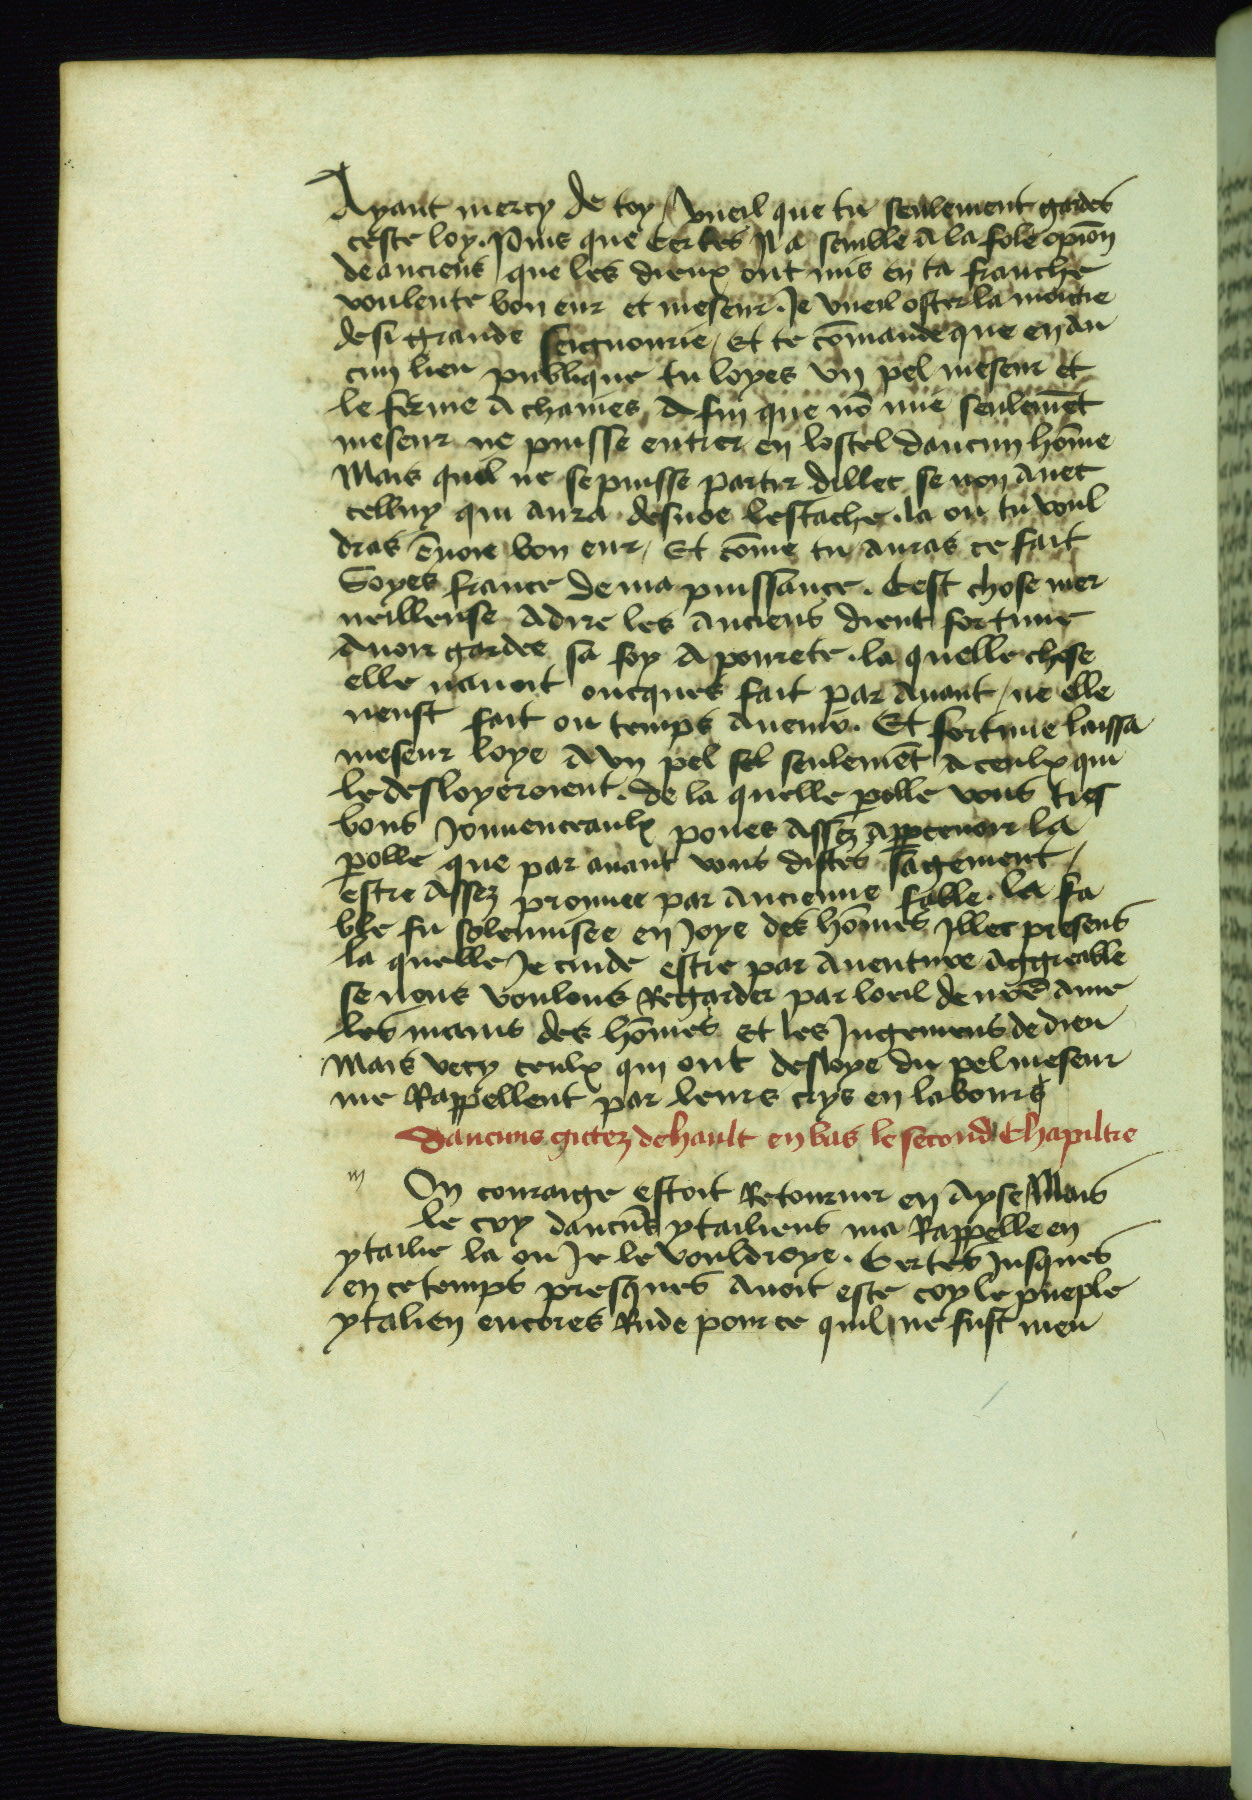 Ayant mercy de toy / vueil que tu seulement gardes
ceste loy. Puis que certes Il a semble a la fole opiōn
de anciens que les dieux ont mis en ta franche
voulente bon eur et meseur. Je vueil oster la moictie
de si grande seignourie / Et te cōmande que en au
cun lieu publique tu loyes un pel meseur et
le ferme a chaines A fin que nō mie seulemēt
meseur ne puisse entrer en lostel daucun hōme
Mais quil ne se puisse partir dillec se non avec
celluy qui aura desnoe lestache. la ou tu voul
dras ēvoie bon eur / Et cōme tu auras ce fait
Soyes france de ma puissance. Cest chose mer
veilleuse adire les anciens dient fortune
Avoir gardee sa foy a pourete. la quelle chose
elle navoit oncques fait par avant / ne elle
neust fait ou temps avenir. Et fortune laissa
meseur loye a un pel sel seulemēt a ceulx qui
le desloyeroient. de la quelle polle vous tres
bons Jouuenceaulx poues assez appcevoir la
polle que par avant vous distes sagement /
estre assez prouuee par ancienne fable. la fa
ble fu solennisee en Joye des hōmes Illec presens
la quelle Je cuide estre par aventure aggreable
se nous voulons Regarder par loeil de nrē ame
les mains des hōmes et les Jugemens de dieu
Mais vecy ceulx qui ont desloye du pel meseur
me Rappellent par leurs crys en labours
Daucuns gictez de hault en bas le second Chapiltre
m On couraige estoit Retourner en Ayse / Mais
le cry daucūs ytailiens ma Rappelle en
ytailie la ou Je le vouldroye. Certes Jusques
en ce temps presques avoit este coy le pueple
ytalien encores Rude pour ce quil ne fust meu